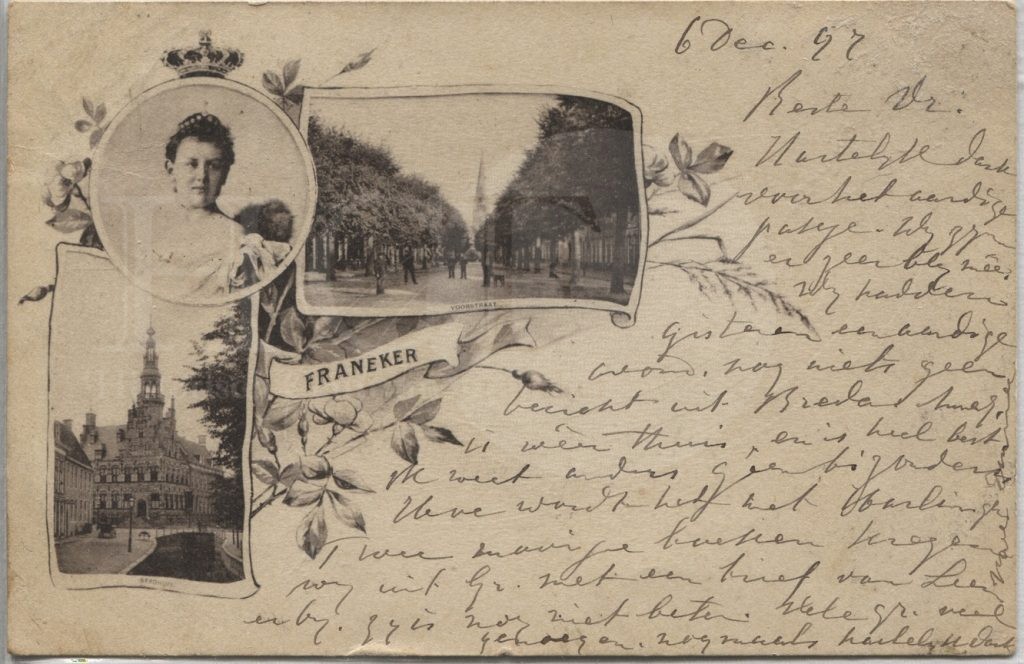 6 Dec. 97
Beste Vr.
Hartelijk dank
voor het aardige
pakje. Wij zijn
er zeer blij mêe
Wij hadden
gisteren een aardige
avond. nog niets geen
bericht uit Breda
is wêer thuis, en is heel best
ik weet anders géen bizonders
wordt het met
Twee mooije boeken kregen
wij uit Gr. met een brief van
erbij. zij is nog niet beter. Vele gr. veel
genoegen. nogmaals hartelijk dank
VOORSTRAAT
FRANEKER
STADHUIS